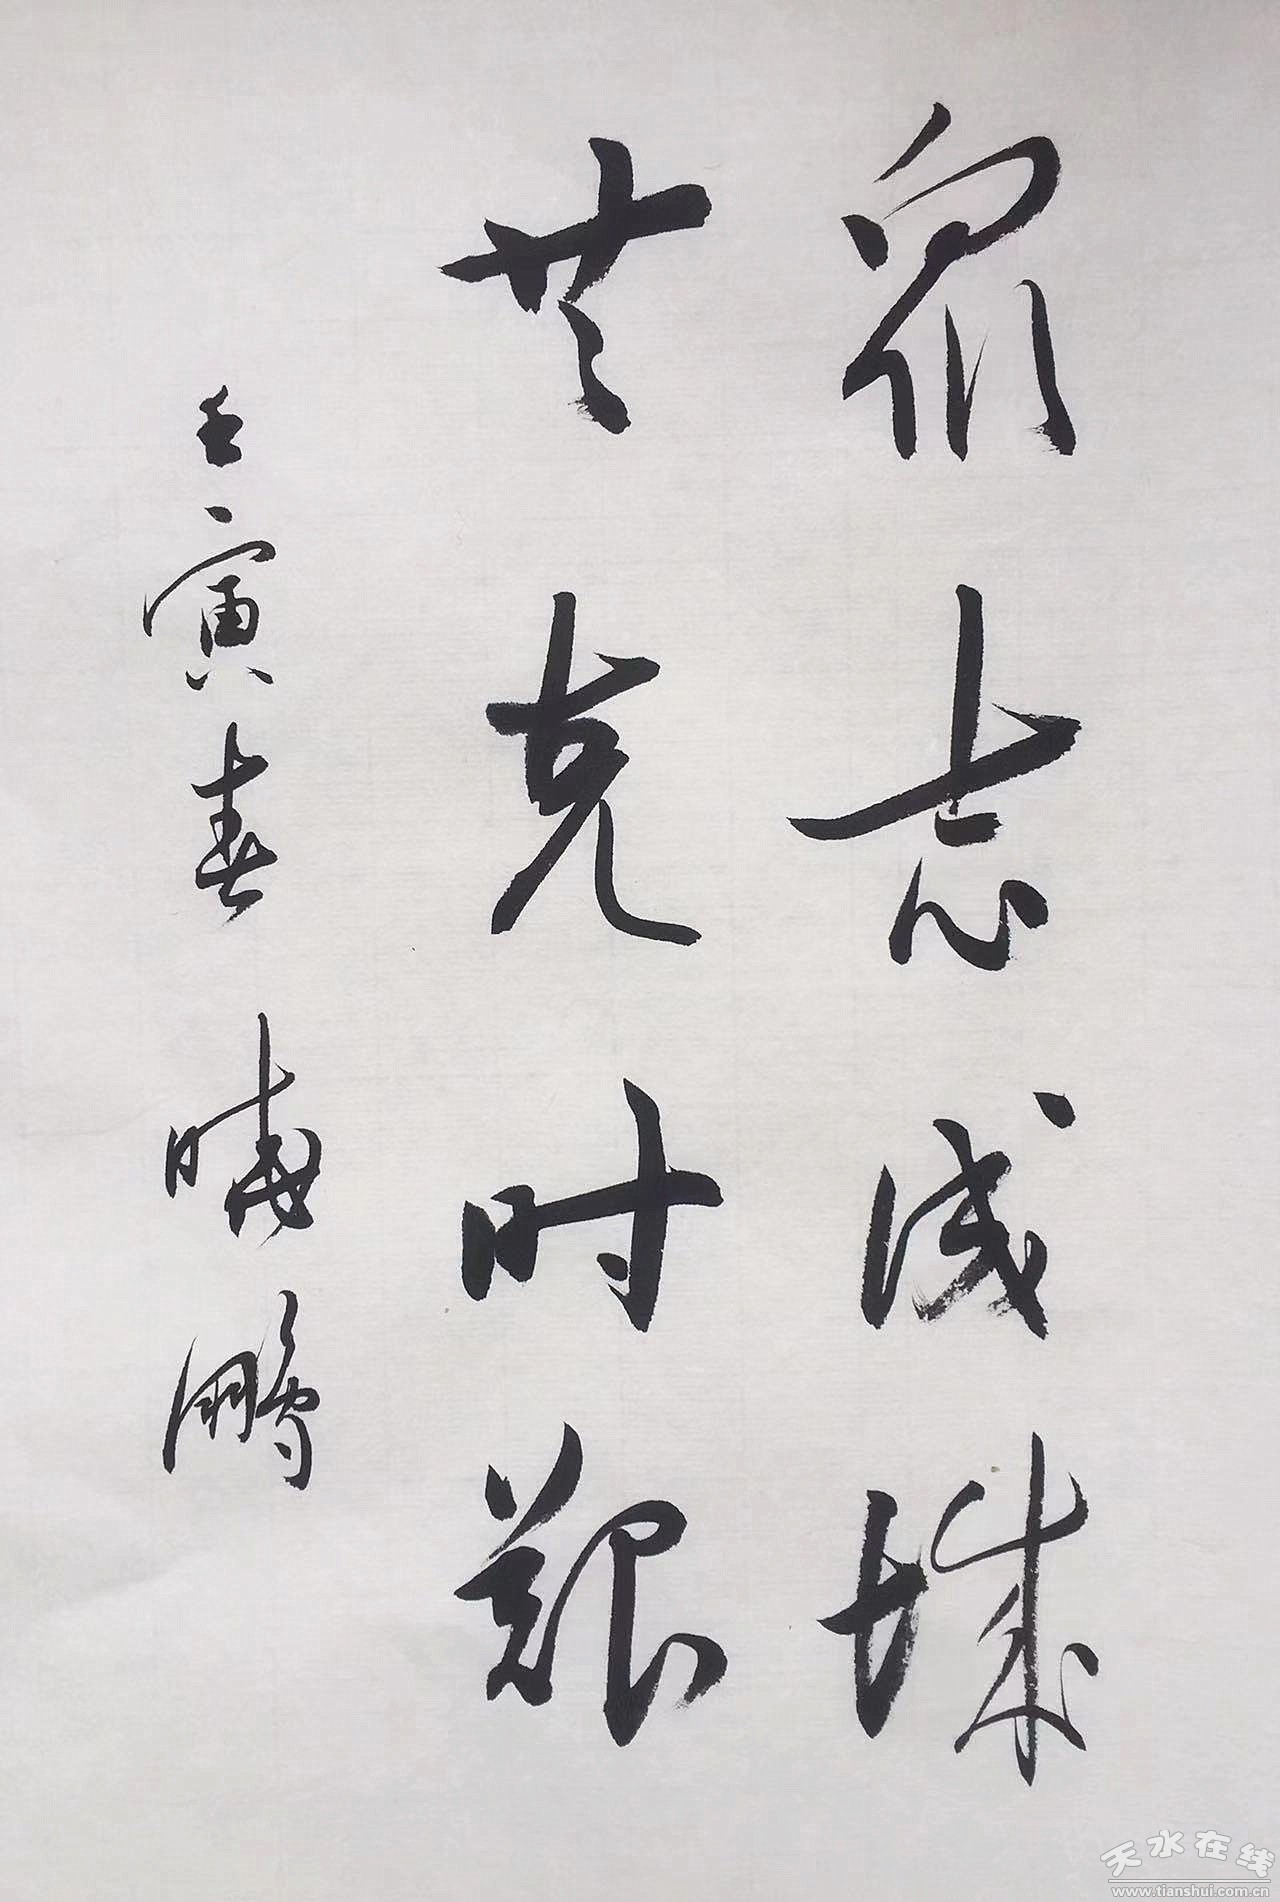 眾志成城
共克时艱
壬寅春 曉鹏
天水在线
www.tianshui.com.cn